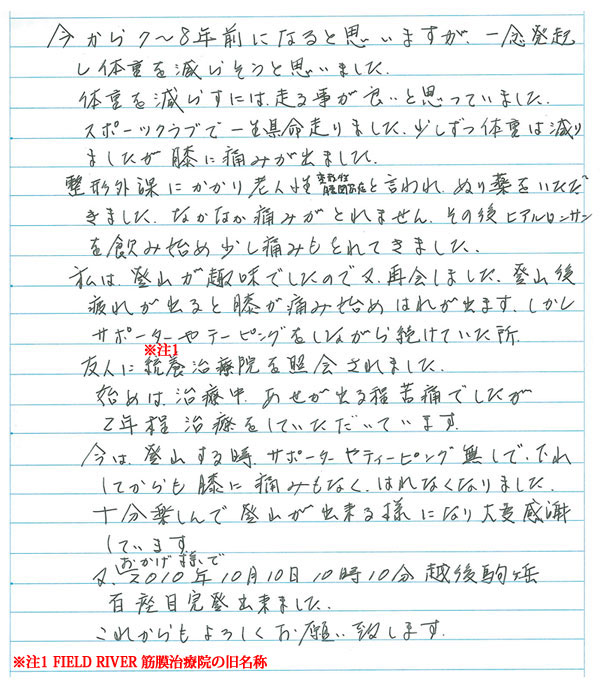 今から7〜8年前になると思いますが、一念発起
し体重を減らそうと思いました.
体重を減らすには、走る事が良いと思っていました.
スポーツクラブで一生県命走りました.少しずつ体重は減り
ましたが膝に痛みが出ました.
整形外課にかかり老人性変形性膝関節症と言われ、ぬり薬をいただ
きました.なかなか痛みがとれません.その後ヒアルロンサン
を飲み始め少し痛みもとれてきました.
私は、登山が趣味でしたので又、再会しました.登山後
疲れが出ると膝が痛み始めはれが出ます.しかし
サポーターやテーピングをしながら続けていた所.
※注1
友人に統養治療院を照会されました.
始めは、治療中、あせが出る程苦痛でしたが
2年程治療をしていただいています.
今は、登山する時、サポーターやティーピング無しで、下れ
してからも膝に痛みもなく、はれなくなりました.
十分楽しんで登山が出来る様になり大変感謝
しています.
おかげ様で
又、2010年10月10日10時10分越後駒ヶ岳
百座目完登出来ました.
これからもよろしくお願い致します.
※注1 FIELD RIVER 筋膜治療院の旧名称